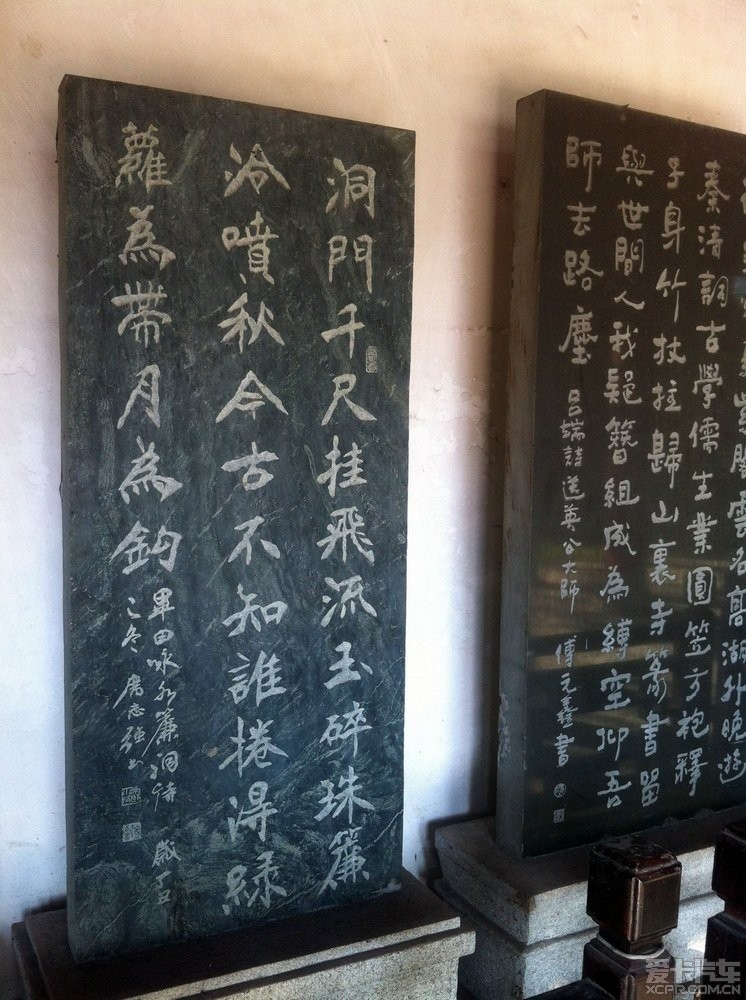 洞門千尺挂飛流玉碎珠簾
冷噴秋今古不知誰捲得綠
蘿為帶月為鈎
畢田詠水簾洞詩 歲丁丑
之冬 席志强书
閣雲名高湖外晚遊
秦清詞古學儒生業圓笠方袍釋
子身竹杖拄歸山裏寺篆書留
與世間人我疑簪組成為縛空仰吾
師去路塵
呂端詩送英公大師 傅元鑫書
爱卡汽车
XCAR.COM.CN